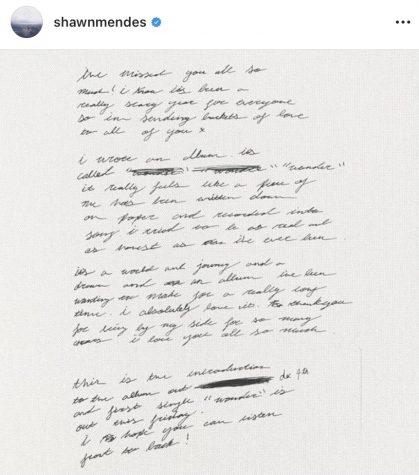 shawnmendes
i've missed you all so
much! i know it's been a
really scary year for everyone
so im sending buckets of love
to all of you x
i wrote an album. it's
called "wonder"
it really feels like a piece of
me has been written down
on paper and recorded into
song i tried to be as real and
as honest as i've ever been.
it's a world and journey and a
dream and an album i've been
wanting to make for a really long
time. i absolutely love it. thank you
for being by my side for so many
years i love you all so much.
this is the introduction
to the album out dec 4th
and first single "wonder" is
out this friday.
i hope you can listen
front to back!